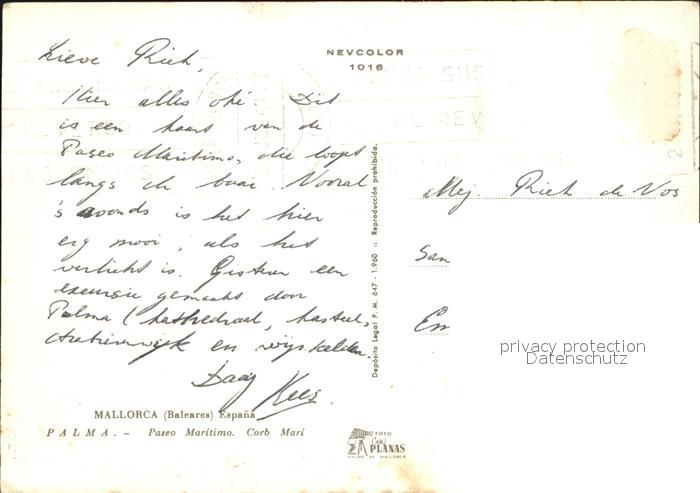 NEVCOLOR
1016
Lieve Rieh,
Hier alles oké. Dit
is een kaart van de
Paseo Maritimo, die loopt
langs de baai. Vooral
's avonds is het hier
erg mooi, als het
verlicht is. Gisteren een
excursie gemaakt door
Palma (kathedraal, kasteel,
Arabierenwijk en wijnkelder.
Daag Kees.
MALLORCA (Baleares) España
PALMA. - Paseo Marítimo. Corb Marí
Depósito Legal P. M. 647 - 1.960 :: Reproducción prohibida.
Mej. Rieh de Vos
San
En
privacy protection
Datenschutz
FOTO
PLANAS
PALMA DE MALLORCA